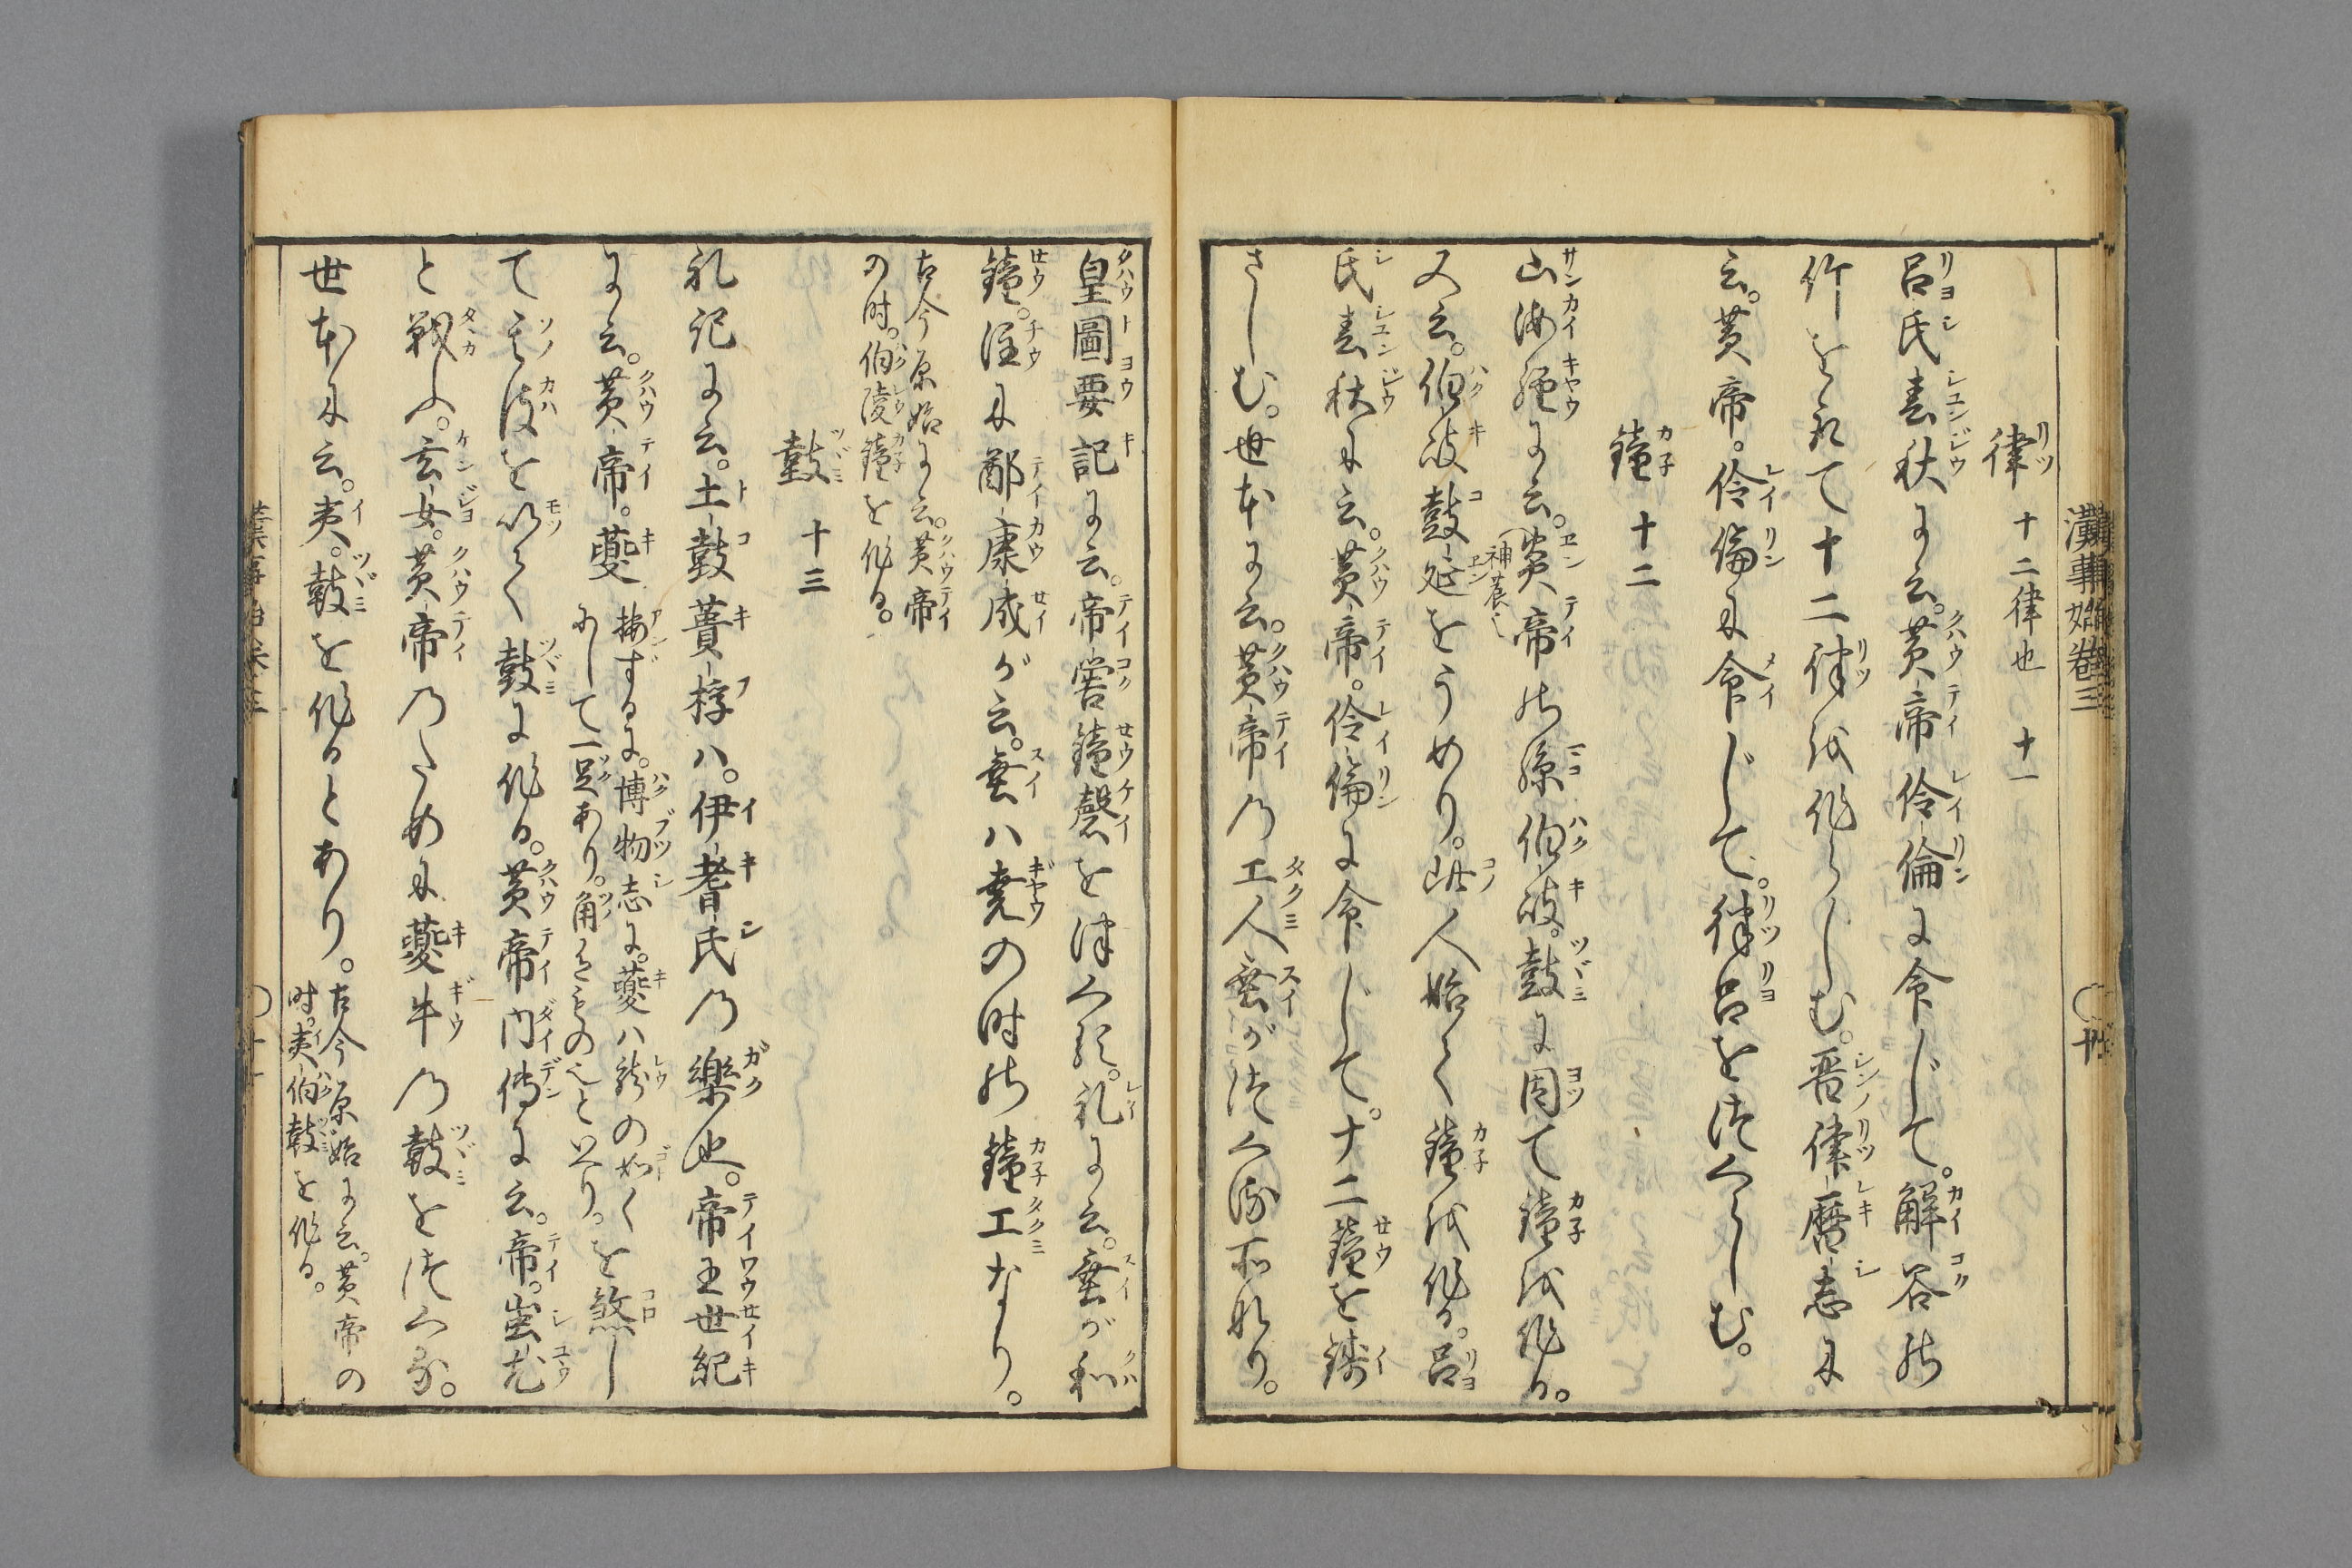 漢事始卷三
律 十二律也 十一
呂氏春秋に云。黄帝伶倫に令じて。解谷の
竹を取て十二律を作らしむ。晋律暦志に
云。黄帝。伶倫に命じて。律呂をつくらしむ。
鐘 十二
山海經に云。炎帝神農也の孫伯岐。鼓に因て鐘を作る。
又云。伯岐鼓延をうめり。此人始て鐘を作る。呂
氏春秋に云。黄帝。伶倫に命じて。十二鐘を鋳
さしむ。世本に云。黄帝の工人垂がつくる所なり。
皇圖要記に云。帝嚳鐘磬をつくる。礼に云。垂が和
鐘。注に鄭康成が云。垂ハ堯の時の鐘工なり。
古今原始に云。黄帝
の時。伯陵鐘を作る。
鼓 十三
礼記に云。土鼓蕢桴ハ。伊耆氏の樂也。帝王世紀
に云。黄帝。夔
按ずるに。博物志に。夔ハ龍の如く
にして一足あり。角あるもの也と云り。
を煞し
て其皮を以て鼓に作る。黄帝内傳に云。帝。蚩尤
と戦ふ。玄女。黄帝のために夔牛の鼓をつくる。
世本に云。夷。鼓を作るとあり。
古今原始に云。黄帝の
時。夷伯鼓を作る。